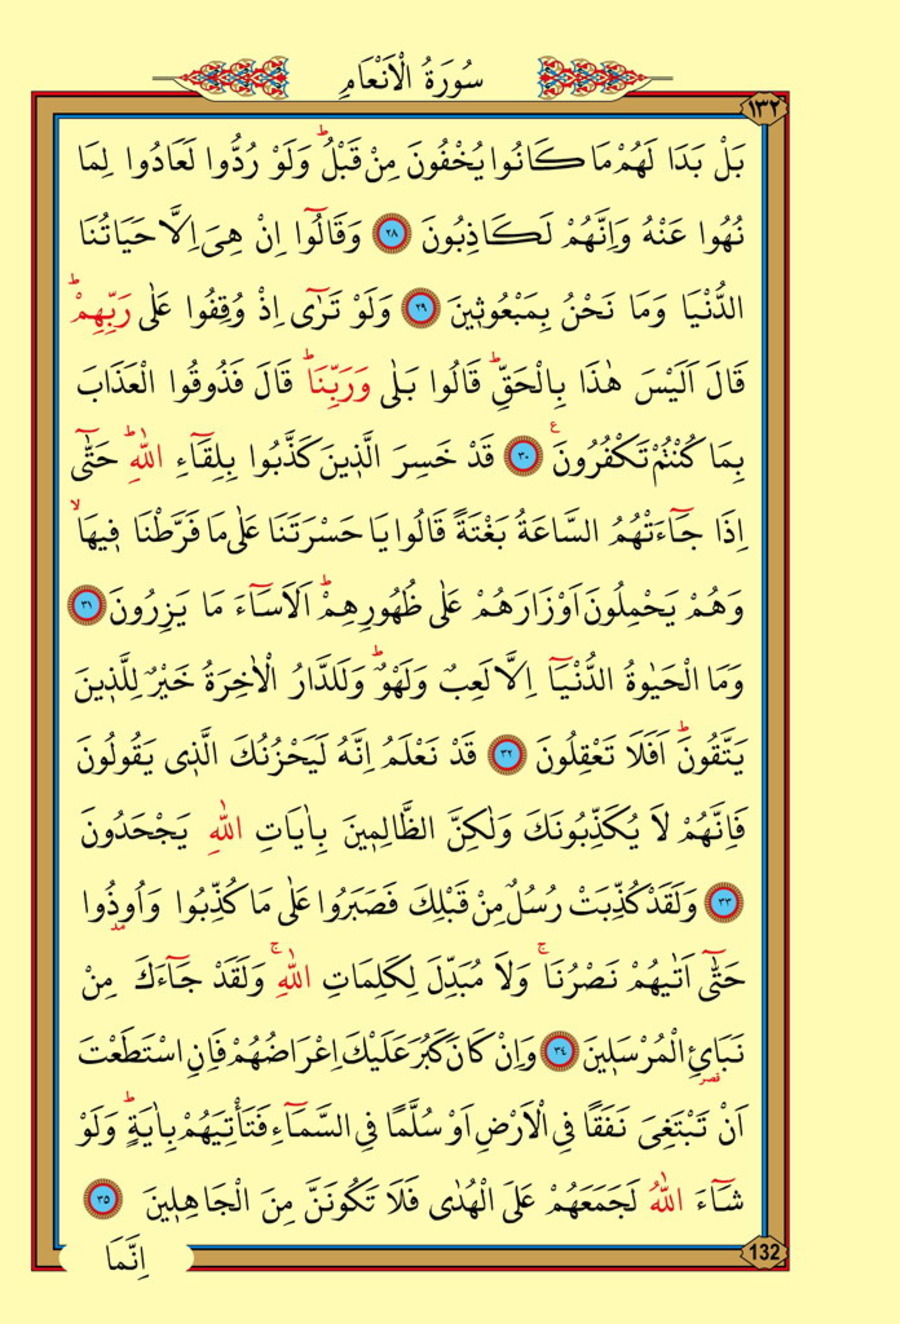 سُورَةُ الْاَنْعَامِ
١٣٢
بَلْ بَدَا لَهُمْ مَا كَانُوا يُخْفُونَ مِنْ قَبْلُۜ وَلَوْ رُدُّوا لَعَادُوا لِمَا
نُهُوا عَنْهُ وَاِنَّهُمْ لَكَاذِبُونَ ٢٨ وَقَالُٓوا اِنْ هِيَ اِلَّا حَيَاتُنَا
الدُّنْيَا وَمَا نَحْنُ بِمَبْعُوث۪ينَ ٢٩ وَلَوْ تَرٰٓى اِذْ وُقِفُوا عَلٰى رَبِّهِمْۜ
قَالَ اَلَيْسَ هٰذَا بِالْحَقِّۜ قَالُوا بَلٰى وَرَبِّنَاۜ قَالَ فَذُوقُوا الْعَذَابَ
بِمَا كُنْتُمْ تَكْفُرُونَ۟ ٣٠ قَدْ خَسِرَ الَّذ۪ينَ كَذَّبُوا بِلِقَٓاءِ اللّٰهِۜ حَتّٰٓى
اِذَا جَٓاءَتْهُمُ السَّاعَةُ بَغْتَةً قَالُوا يَا حَسْرَتَنَا عَلٰى مَا فَرَّطْنَا ف۪يهَاۙ
وَهُمْ يَحْمِلُونَ اَوْزَارَهُمْ عَلٰى ظُهُورِهِمْۜ اَلَا سَٓاءَ مَا يَزِرُونَ ٣١
وَمَا الْحَيٰوةُ الدُّنْيَٓا اِلَّا لَعِبٌ وَلَهْوٌۜ وَلَلدَّارُ الْاٰخِرَةُ خَيْرٌ لِلَّذ۪ينَ
يَتَّقُونَۜ اَفَلَا تَعْقِلُونَ ٣٢ قَدْ نَعْلَمُ اِنَّهُ لَيَحْزُنُكَ الَّذ۪ي يَقُولُونَ
فَاِنَّهُمْ لَا يُكَذِّبُونَكَ وَلٰكِنَّ الظَّالِم۪ينَ بِاٰيَاتِ اللّٰهِ يَجْحَدُونَ
٣٣ وَلَقَدْ كُذِّبَتْ رُسُلٌ مِنْ قَبْلِكَ فَصَبَرُوا عَلٰى مَا كُذِّبُوا وَاُو۫ذُوا
حَتّٰٓى اَتٰيهُمْ نَصْرُنَاۚ وَلَا مُبَدِّلَ لِكَلِمَاتِ اللّٰهِۚ وَلَقَدْ جَٓاءَكَ مِنْ
نَبَا۬ئِ الْمُرْسَل۪ينَ ٣٤ وَاِنْ كَانَ كَبُرَ عَلَيْكَ اِعْرَاضُهُمْ فَاِنِ اسْتَطَعْتَ
اَنْ تَبْتَغِيَ نَفَقًا فِي الْاَرْضِ اَوْ سُلَّمًا فِي السَّمَٓاءِ فَتَأْتِيَهُمْ بِاٰيَةٍۜ وَلَوْ
شَٓاءَ اللّٰهُ لَجَمَعَهُمْ عَلَى الْهُدٰى فَلَا تَكُونَنَّ مِنَ الْجَاهِل۪ينَ ٣٥
اِنَّمَا
132